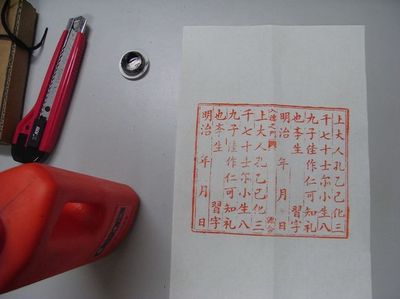 上大人孔乙己化三
千七十士尔小生八
九子佳作仁可知礼
也李生 習字
明治 年 月 日
入德之門
上大人孔乙己化三
千七十士尔小生八
九子佳作仁可知礼
也李生 習字
明治 年 月 日